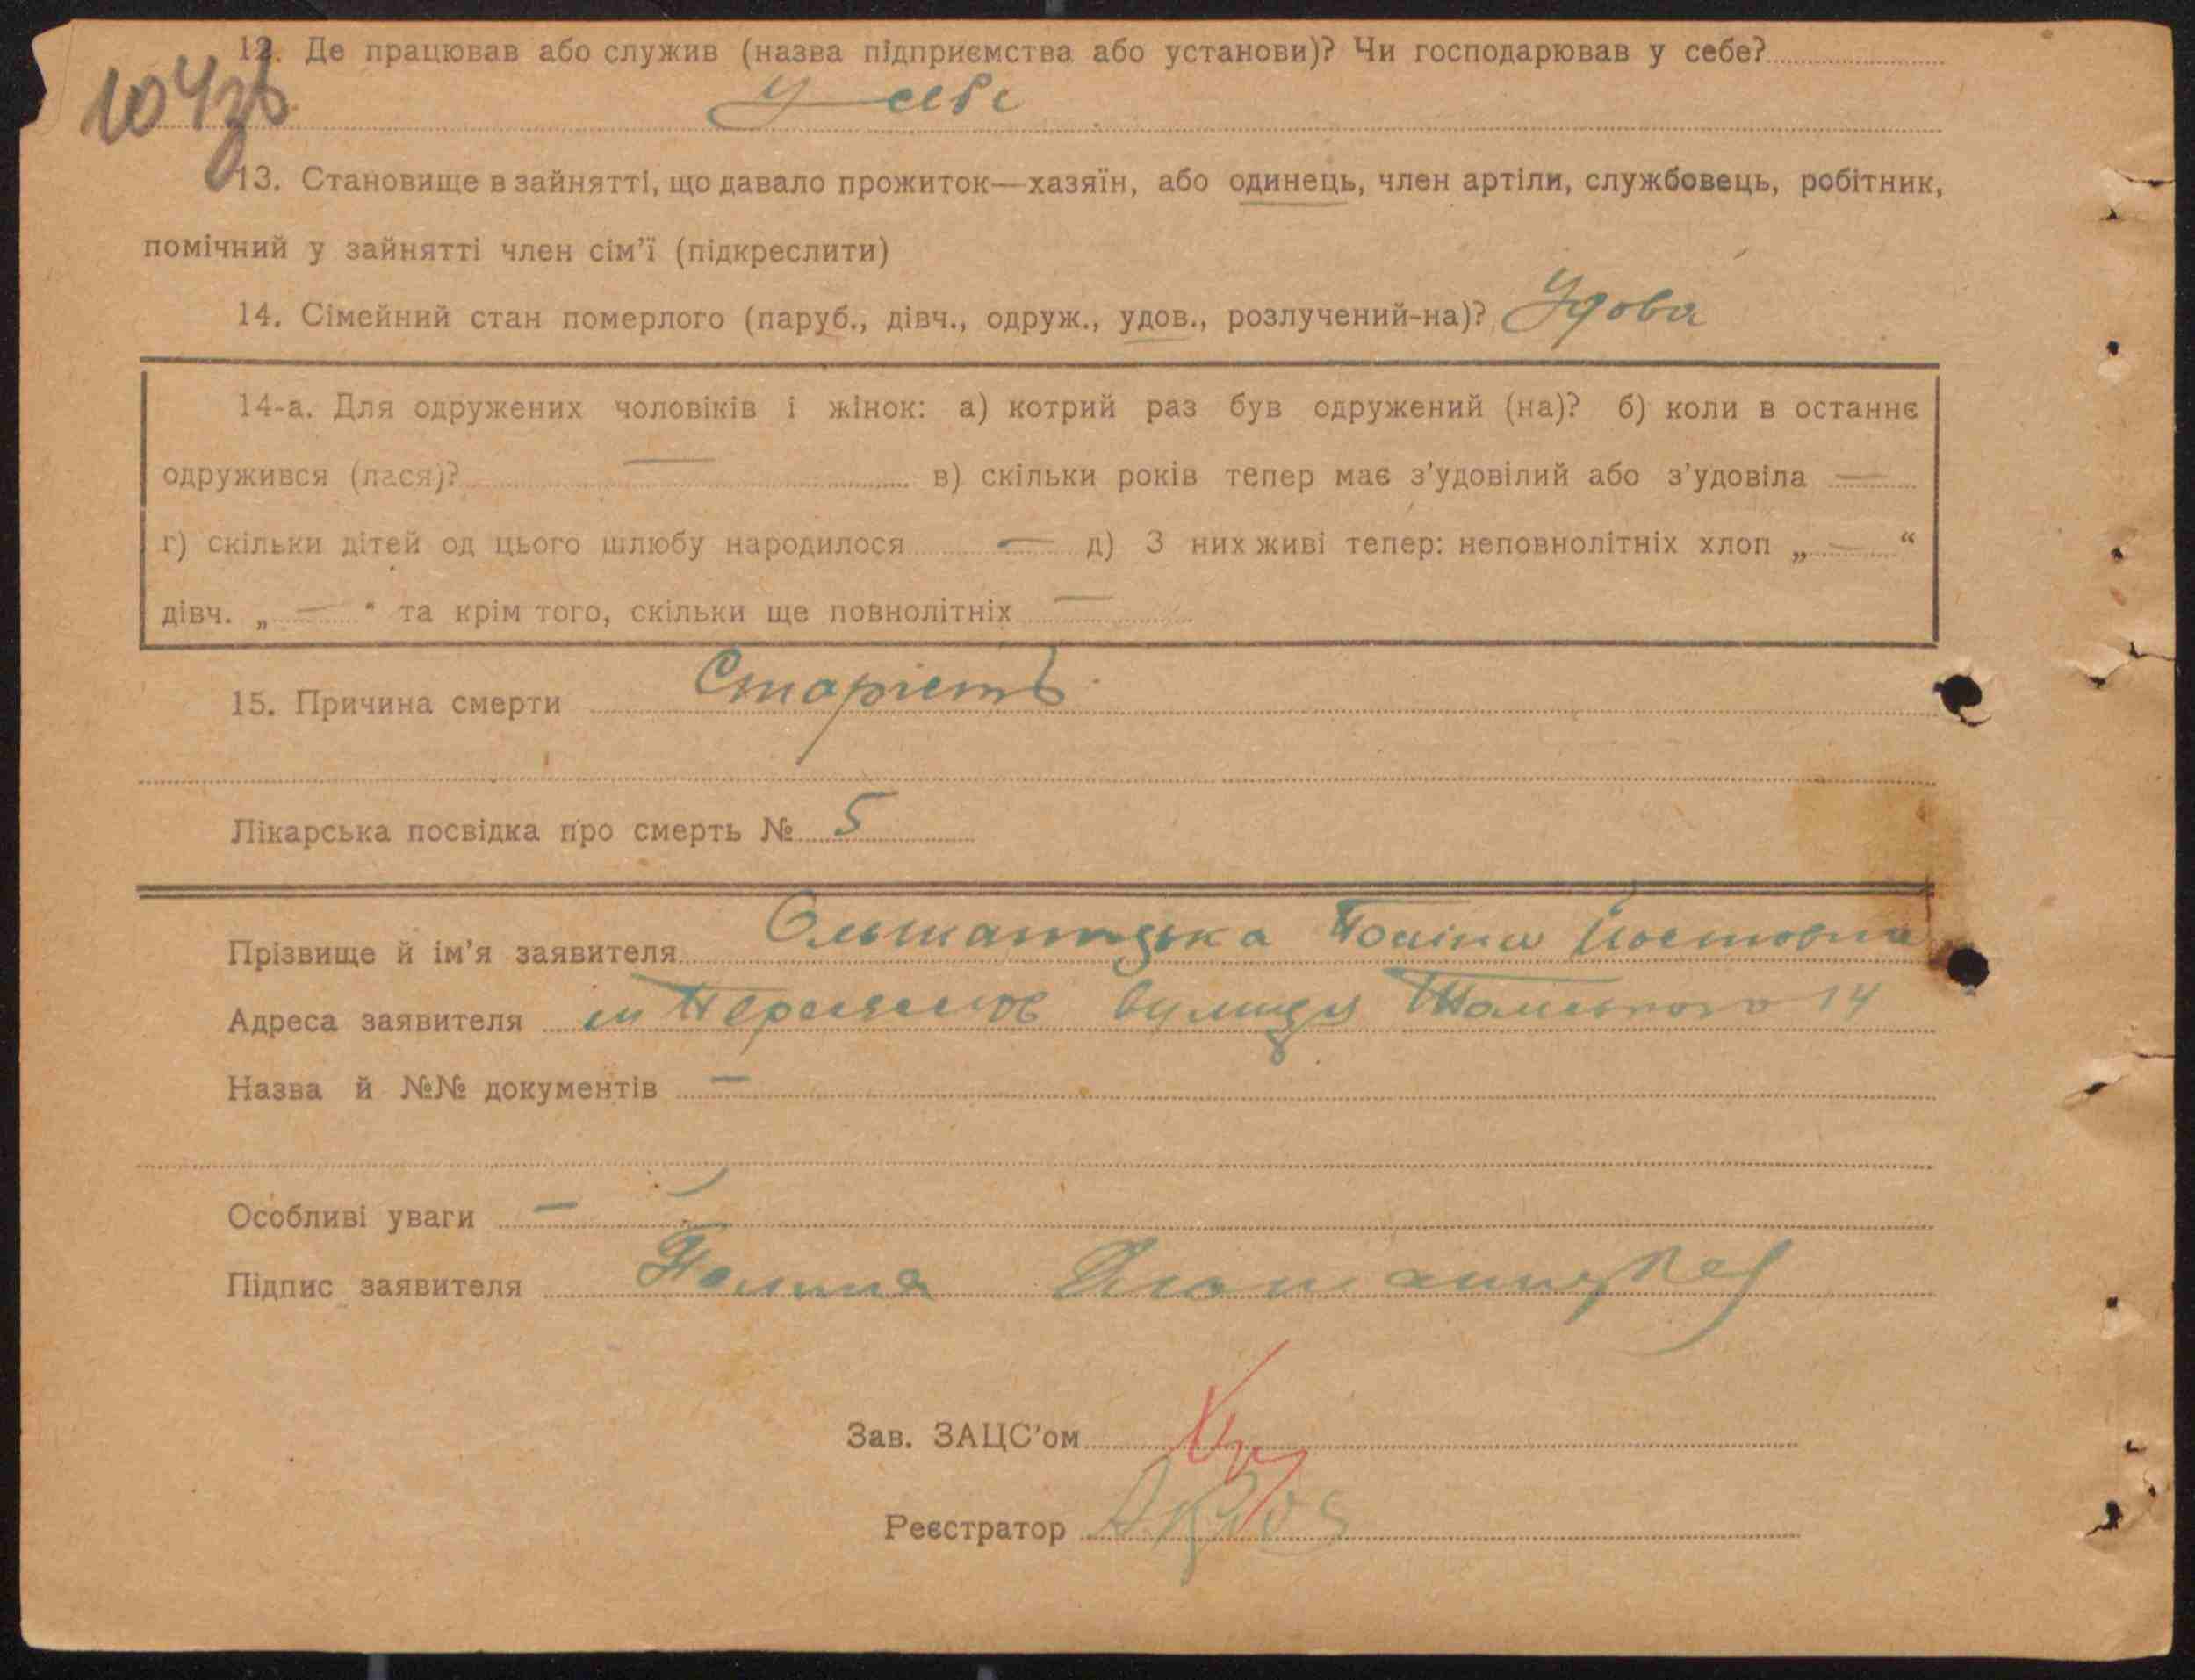 104зв
12. Де працював або служив (назва підприємства або установи)? Чи господарював у себе?
У себе
13. Становище в зайнятті, що давало прожиток—хазяїн, або одинець, член артіли, службовець, робітник,
помічний у зайнятті член сім'ї (підкреслити)
14. Сімейний стан померлого (паруб., дівч., одруж., удов., розлучений-на)? Удова
14-а. Для одружених чоловіків і жінок: а) котрий раз був одружений (на)? б) коли в останнє
одружився (лася)? — в) скільки років тепер має з'удовілий або з'удовіла —
г) скільки дітей од цього шлюбу народилося — д) З них живі тепер: неповнолітніх хлоп „ — “
дівч. „ — “ та крім того, скільки ще повнолітніх —
15. Причина смерти Старість
Лікарська посвідка про смерть № 5
Прізвище й ім'я заявителя Ольшаницька
Адреса заявителя м Переяслов вулиця 14
Назва й №№ документів —
Особливі уваги —
Підпис заявителя Полина
Зав. ЗАЦС'ом
Реєстратор